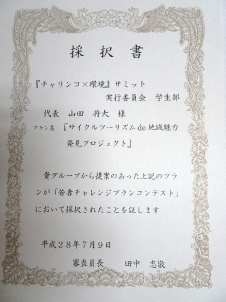 採択書
『チャリンコ×環境』サミット
実行委員会 学生部
代表 山田 将大 様
プラン名 『サイクルツーリズムde地域魅力
発見プロジェクト』
貴グループから提案のあった上記のプラ
ンが「若者チャレンジプランコンテスト」
において採択されたことを証します
平成28年7月9日
審査員長 田中 志敬